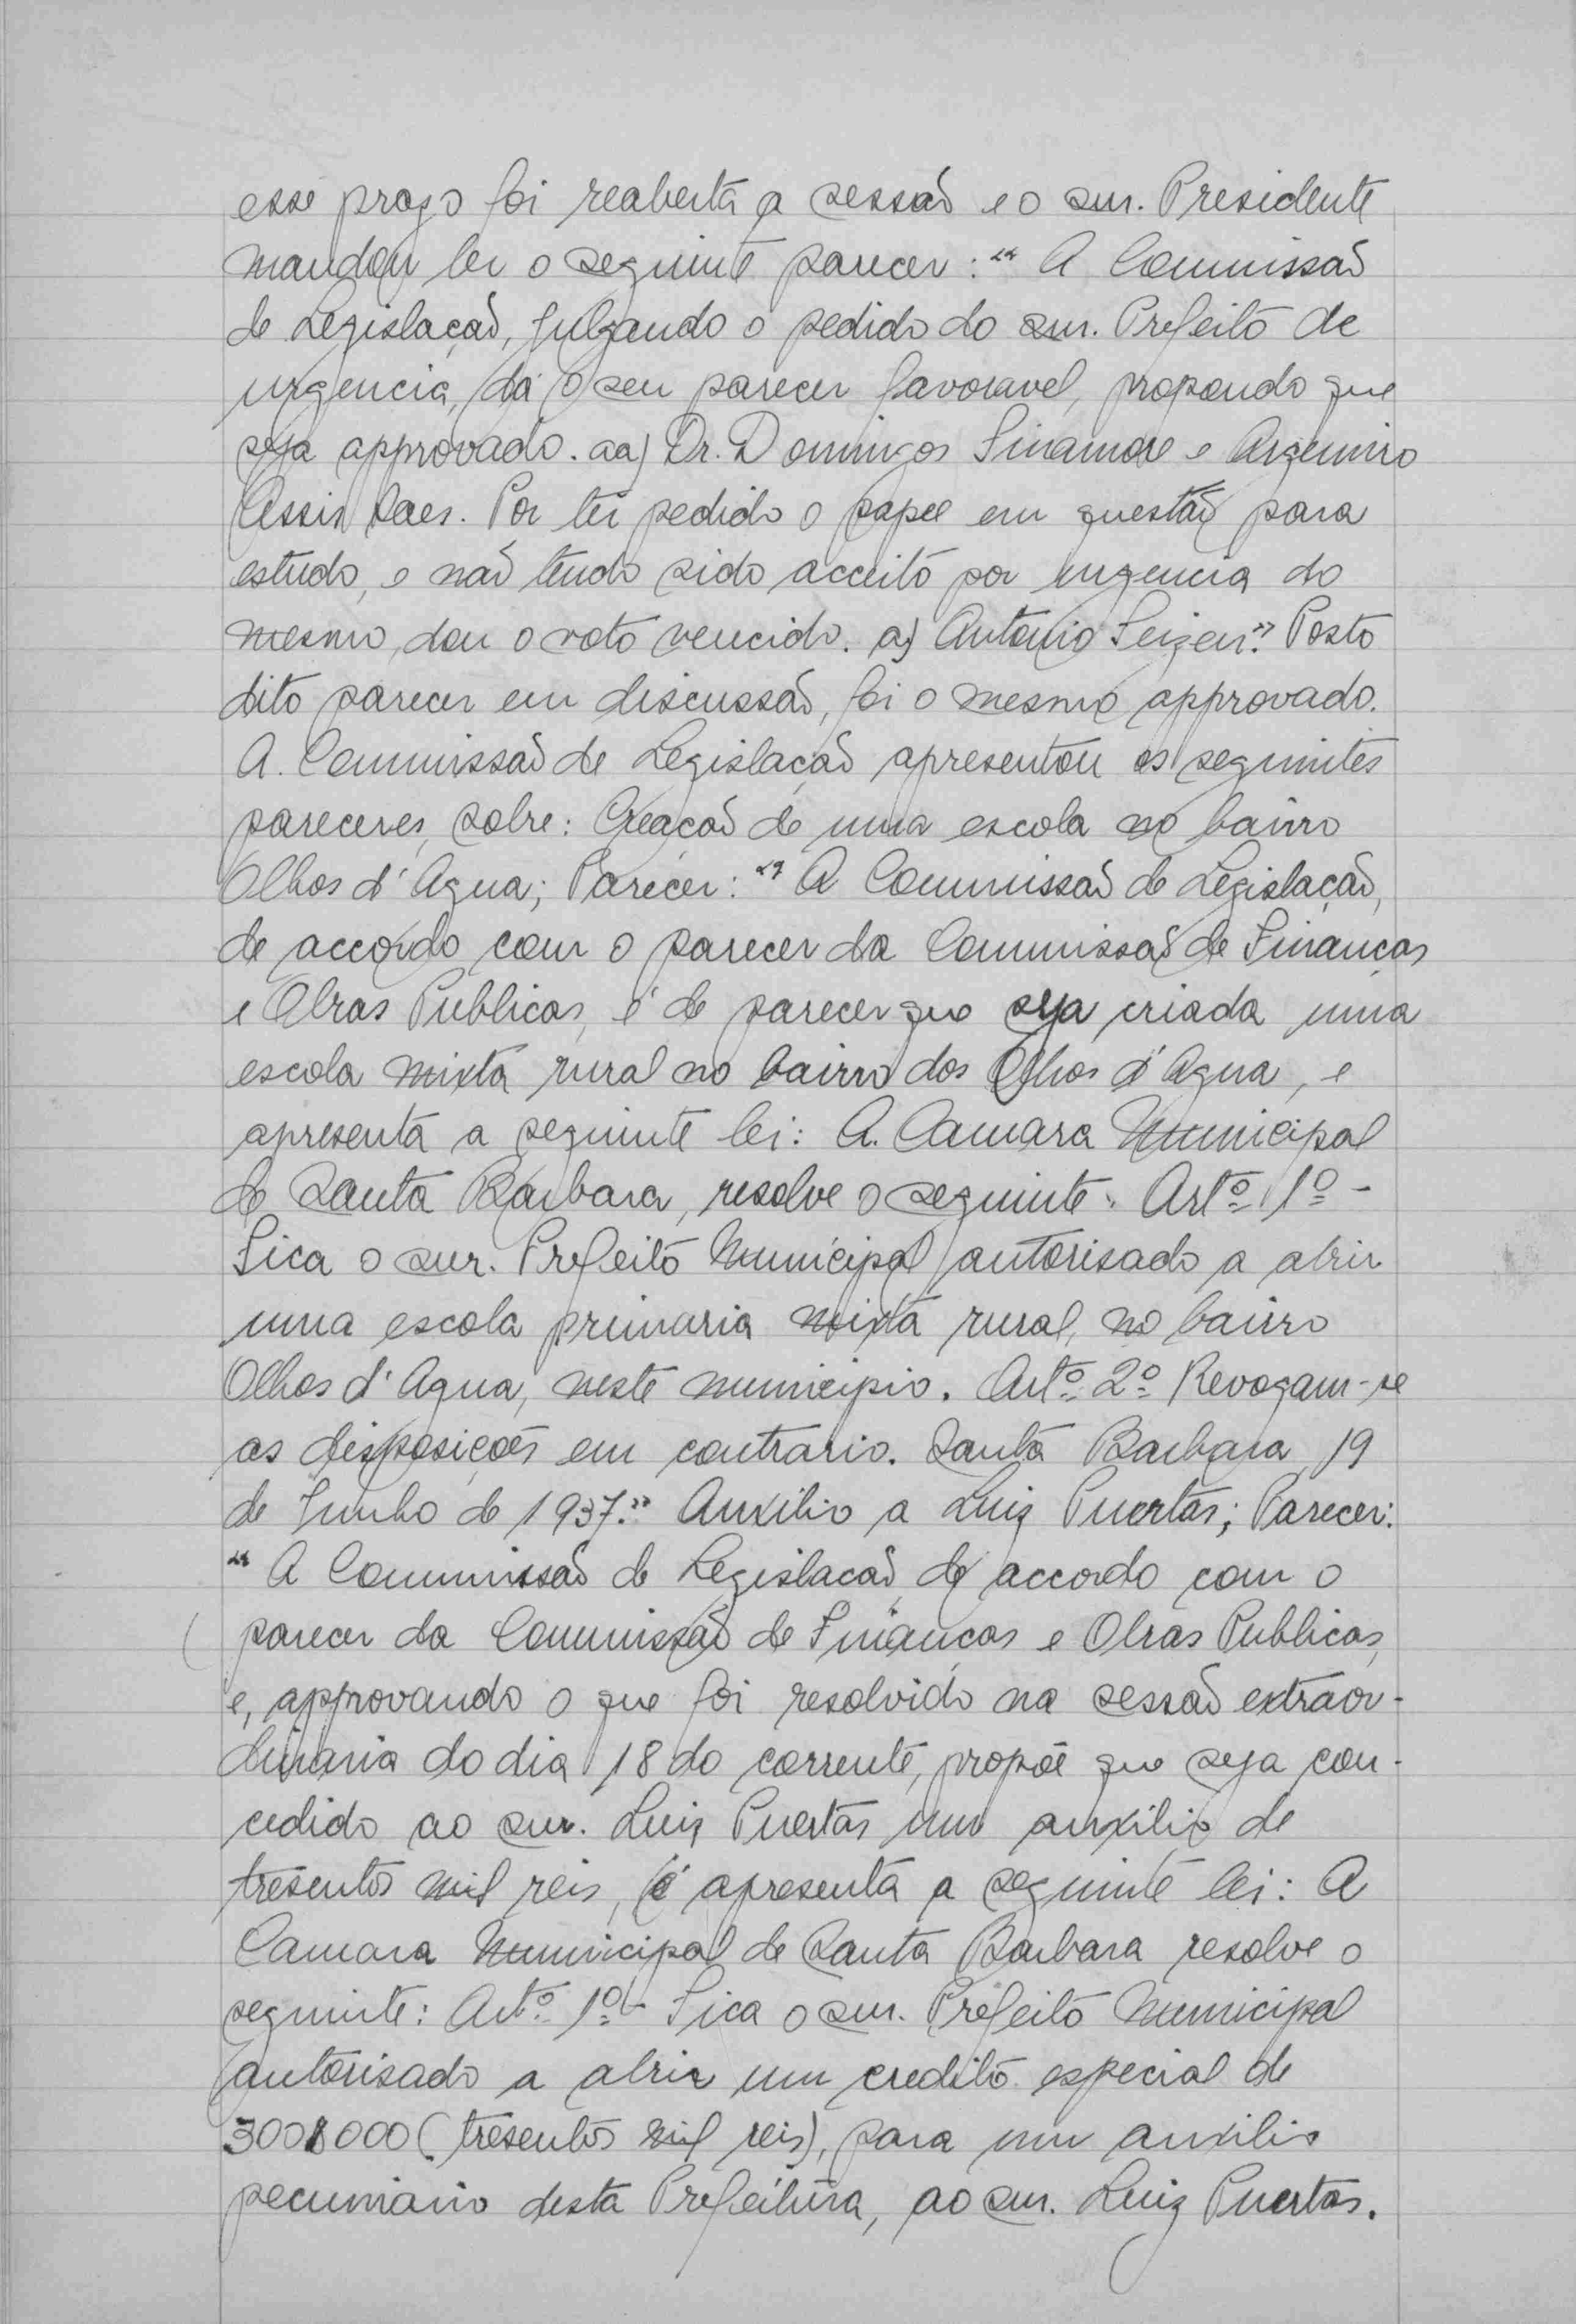 esse prazo foi reaberta a sessão e o snr. Presidente
mandou ler o seguinte parecer: "A Commissão
de Legislação, julgando o pedido do snr. Prefeito de
urgencia, dá o seu parecer favoravel, propondo que
seja approvado. aa) Dr. Domingos Finamore e Argemiro
Assis Saes. Por ter pedido o papel em questão para
estudo, e não tendo sido acceito por urgencia do
mesmo, dou o voto vencido. a) Antonio". Posto
dito parecer em discussão, foi o mesmo approvado.
A. Commissão de Legislação apresentou os seguintes
pareceres, sobre: Creação de uma escola no bairro
Olhos d'Agua; Parecer: "A Commissão de Legislação,
de accordo com o parecer da Commissão de Finanças
e Obras Publicas, é de parecer que seja criada uma
escola mixta rural no bairro dos Olhos d'Agua, e
apresenta a seguinte lei: A. Camara Municipal
de Santa Barbara, resolve o seguinte: Artº 1º -
Fica o snr. Prefeito Municipal autorisado a abrir
uma escola primaria mixta rural, no bairro
Olhos d'Agua, neste municipio. Artº 2º Revogam-se
as disposições em contrario. Santa Barbara, 19
de Junho de 1937." Auxilio a Luiz Puertas; Parecer:
"A Commissão de Legislacão, de accordo com o
parecer da Commissão de Finanças e Obras Publicas,
e, approvando o que foi resolvido na sessão extraor-
dinaria do dia 18 do corrente, propõe que seja con-
cedido ao snr. Luiz Puertas um auxilio de
tresentos mil reis, e apresenta a seguinte lei: A
Camara Municipal de Santa Barbara resolve o
seguinte: Artº 1º - Fica o snr. Prefeito Municipal
autorisado a abrir um credito especial de
300$000 (tresentos mil reis), para um auxilio
pecuniario desta Prefeitura, ao snr. Luiz Puertas.